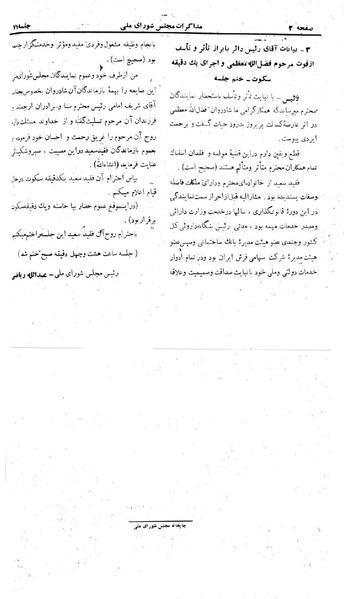 صفحه ۲
مذاکرات مجلس شورای ملی
جلسه ۱۱
۳ - بیانات آقای رئیس دائر بابراز تأثر و تأسف
از فوت مرحوم فضل‌الله معظمی و اجرای یك دقیقه
سکوت - ختم جلسه
رئیس - با نهایت تأثر و تأسف باستحضار نمایندگان
محترم میرساند که همکار گرامی ما شادروان فضل‌الله معظمی
در اثر عارضهٔ سکته پریروز بدرود حیات گفت و برحمت
ایزدی پیوست.
قطع و یقین دارم در این قضیهٔ مولمه و فقدان اسفناك
تمام همکاران محترم متأثر و متألم هستند (صحیح است)
فقید سعید از خانواده‌ای محترم و دارای ملکات فاضله
وصفات پسندیده بود. مشارالیه قبل از احراز سمت نمایندگی
در این دورهٔ قانونگذاری، سالها در خدمت وزارت دارائی
ومصدر خدمات مهمه بود، مدتی رئیس بنگاه داروئی کل
کشور و چندی عضو هیئت مدیرهٔ بانك ساختمانی و سپس عضو
هیئت مدیرهٔ شرکت سهامی فرش ایران بود و در تمام ادوار
خدمات دولتی و ملی خود با نهایت صداقت و صمیمیت و علاقه
بانجام وظیفه مشغول و فردی مفید و مؤثر و خدمتگزار بود
بود (صحیح است)
من از طرف خود و عموم نمایندگان مجلس شورای
این ضایعه را بهمهٔ بازماندگان آن شادروان بخصوص بجناب
آقای شریف امامی رئیس محترم سنا و برادران ارجمند و
فرزندان آن مرحوم تسلیت گفته و از خداوند مسئلت دارم
روح آن مرحوم را غریق رحمت و احسان خود فرموده و
بعموم بازماندگان فقید سعید در این مصیبت، صبر و شکیبائی
عنایت فرماید (انشاءالله).
بپاس احترام آن فقید سعید یکدقیقه سکوت در حال
قیام اعلام میکنم.
(در این موقع عموم حضار بپا خاسته و یك دقیقه سکوت
برقرار بود)
باحترام روح آن فقید سعید این جلسه را ختم میکنم
(جلسه ساعت هشت و چهل دقیقه صبح ختم شد)
رئیس مجلس شورای ملی - عبدالله ریاضی
چاپخانه مجلس شورای ملی